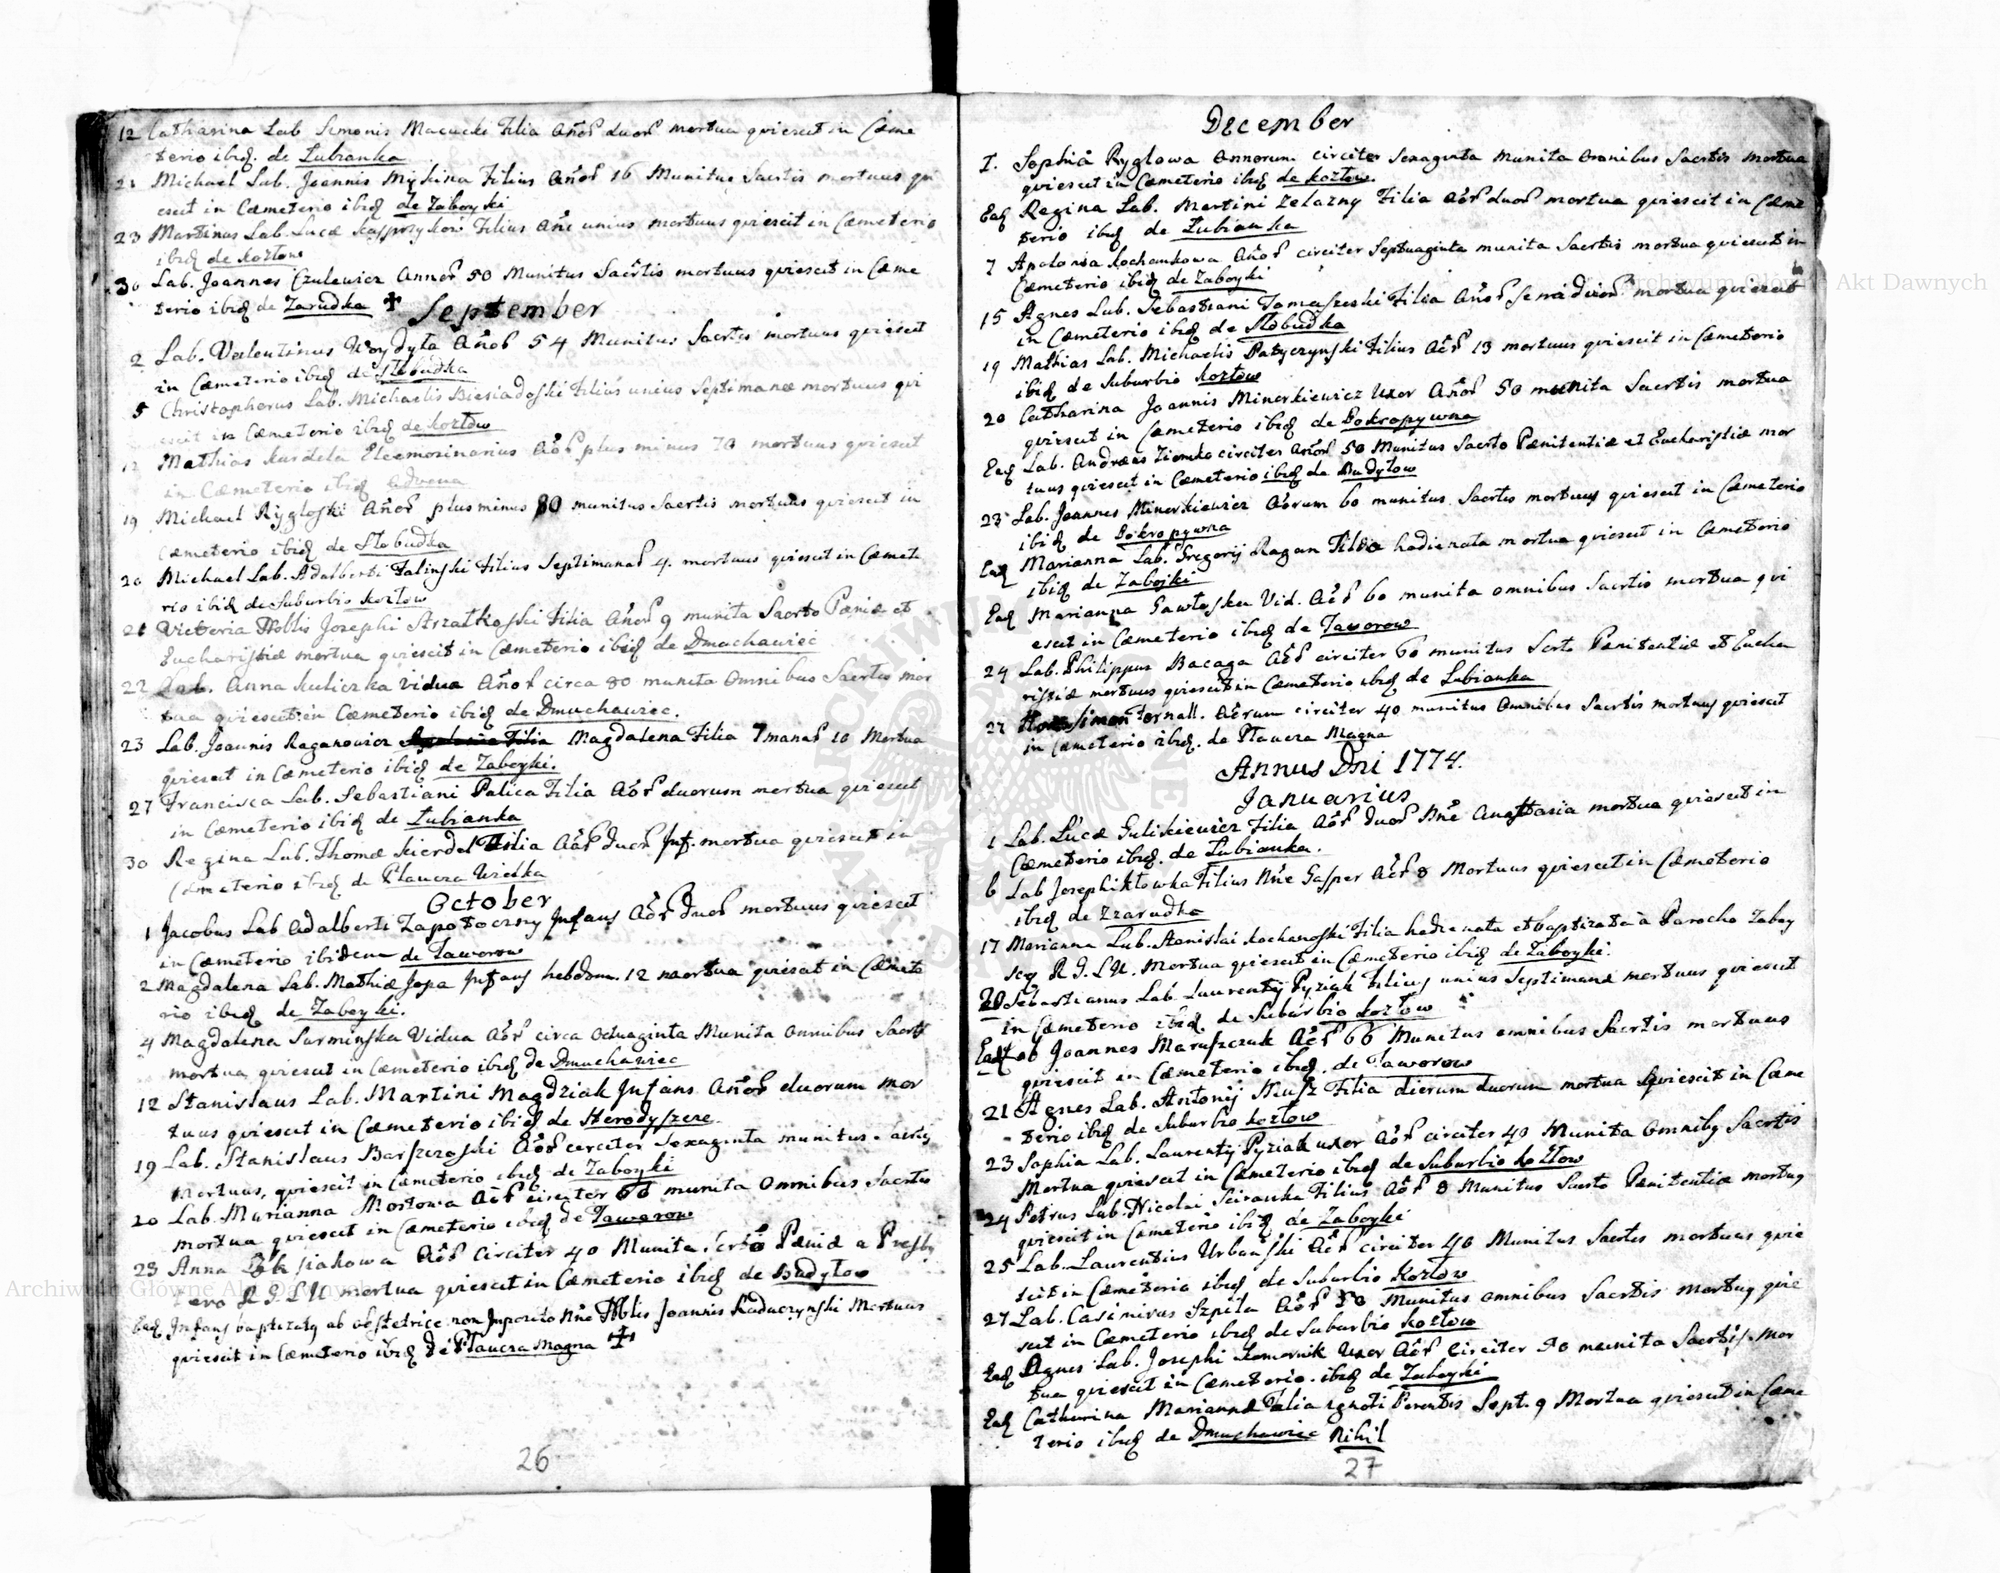 12 Catharina Lab Simonis Macucki Filia Añor duor mortua quiescit in Cæme
terio ibiq. de Łubianka
21 Michael Lab. Joannis Mykina Filius Añor 16 Munitus Sacrtis mortuus qui
escit in Cæmeterio ibiq de Zaboyki
23 Martinus Lab. Lucæ Kasprzykow Filius Añi unius mortuus quiescit in Cæmeterio
ibiq de Kozłow
30 Lab. Joannes Czulewicz Annor 50 Munitus Sacrtis mortuus quiescit in Cæme
terio ibiq de Zarudka
September
2 Lab. Valentinus Woydyta Añor 54 Munitus Sacrtis mortuus quiescit
in Cæmeterio ibiq de Słobudka
5 Christophorus Lab. Michaelis Biesiadoski Filius unius Septimanæ mortuus qui
escit in Cæmeterio ibiq de Kozłow
12 Mathias Kurdela Eleemozinarius Aör plus minus 70 mortuus quiescit
in Cæmeterio ibiq advena
19 Michael Rygloski Añor plus minus 80 munitus Sacrtis mortuus quiescit in
Cæmeterio ibiq de Słobudka
20 Michael Lab. Adalberti Falinski Filius Septimanar 4. mortuus quiescit in Cæmete
rio ibiq de Suburbio Kozłow
21 Victoria Nobilis Josephi Strzałkoski Filia Añor 9 munita Sacrto Pæniæ et
Eucharistiæ mortua quiescit in Cæmeterio ibiq de Dmuchawiec
22 Lab. Anna Kuliczka vidua Añor circa 80 munita Omnibus Sacrtis mor
tua quiescit in Cæmeterio ibiq de Dmuchawiec.
23 Lab. Joannis Raganowicz Apolonia Filia Magdalena Filia 7manar 10 Mortua
quiescit in Cæmeterio ibiq de Zaboyki.
27 Francisca Lab. Sebastiani Palica Filia Aör duorum mortua quiescit
in Cæmeterio ibiq de Łubianka
30 Regina Lab. Thomæ Kierdel Filia Aör duor Inf. mortua quiescit in
Cæmeterio ibiq de Płaucza Wielka
October
1 Jacobus Lab Adalberti Zapotoczny Infans Aör duor mortuus quiescit
in Cæmeterio ibidem de Jaworow
2 Magdalena Lab. Mathiæ Jopa Infans hebdom. 12 mortua quiescit in Cæmete
rio ibiq de Zaboyki.
4 Magdalena Surminska Vidua Aör circa Octuaginta Munita omnibus Sacrt
mortua quiescit in Cæmeterio ibiq de Dmuchawiec
12 Stanislaus Lab. Martini Magdziak Infans Añor duorum mor
tuus quiescit in Cæmeterio ibiq de Horodyszcze
19 Lab. Stanislaus Barszczoski Aör circiter Sexaginta munitus Sacrtis
Mortuus, quiescit in Cæmeterio ibiq. de Zaboyki
20 Lab. Marianna Mostowa Aör circiter 66 munita Omnibus Sacrtis
mortua quiescit in Cæmeterio ibiq de Jaworow
23 Anna Aör Circiter 40 Munita Scrto Pæniæ a Presby
tero R G L U mortua quiescit in Cæmeterio ibiq de Budyłow
Eaq Infans baptizatq ab obstetrice non Inposito Nñe Nobilis Joannis Raduczynski Mortuus
quiescit in Cæmeterio ibiq de Płaucza Magna
26
December
1. Sophia Ryglowa Annorum circiter Sexaginta Munita Omnibus Sacrtis mortua
quiescit in Cæmeterio ibiq de Kozłow.
Eaq Regina Lab. Martini Zelazny Filia Aör duor mortua quiescit in Cæme
terio ibiq de Łubianka
7 Apolonia Kochankowa Añor circiter Septuaginta munita Sacrtis mortua quiescit in
Cæmeterio ibiq de Zaboyki
15 Agnes Lab. Sebastiani Tomaszeski Filia Añor mortua quiescit
in Cæmeterio ibiq de Słobudka
19 Mathias Lab. Michaelis Patyczynski Filius Aör 13 mortuus quiescit in Cæmeterio
ibiq de Suburbio Kozłow
20 Catharina Joannis Minerkiewicz Uxor Añor 50 munita Sacrtis mortua
quiescit in Cæmeterio ibiq de Pokropywna
Eaq Lab. Andreas Ziomko circiter Añor 50 Munitus Sacrto Pænitentiæ et Eucharistiæ mor
tuus quiescit in Cæmeterio ibiq de Budyłow
23 Lab. Joannes Minerkiewicz Aörum 60 munitus Sacrtis mortuus quiescit in Cæmeterio
ibiq de Pokropywna
Eaq Marianna Lab. Gregorij Ragan Filia hodie nata mortua quiescit in Cæmeterio
ibiq de Zabojki
Eaq Marianna Gawłoska Vid. Aör 60 munita omnibus Sacrtis mortua qui
escit in Cæmeterio ibiq de Jaworow
24 Lab. Philippus Bacaga Aör circiter 60 munitus Scrto Pænitentiæ et Eucha
ristiæ mortuus quiescit in Cæmeterio ibiq de Łubianka
27 Simon Fornall. Aörum circiter 40 munitus Omnibus Sacrtis mortuus quiescit
in Cæmeterio ibiq. de Płaucza Magna
Annus Dni 1774.
Januarius
1 Lab. Lucæ Gulikiewicz Filia Aör duor Nñe Anastasia mortua quiescit in
Cæmeterio ibiq. de Łubianka.
6 Lab Josephi Kłowka Filius Nñe Gasper Aör 8 Mortuus quiescit in Cæmeterio
ibiq de Zzarudka
17 Marianna Lab. Stanislai Kochanoski Filia hodie nata et baptizata à Parocho Zaboy
R. G. L U. Mortua quiescit in Cæmeterio ibiq de Zaboyki.
20 Sebastianus Lab Laurentij Pyziak Filius unius Septimanæ mortuus quiescit
in Cæmeterio ibiq. de Suburbio Kozłow
Eaq Lab Joannes Maruszczak Aör 66 Munitus omnibus Sacrtis mortuus
quiescit in Cæmeterio ibiq. de Jaworow
21 Agnes Lab. Antonij Kusz Filia dierum duorum mortua quiescit in Cæme
terio ibiq de Suburbio Kozłow
23 Sophia Lab. Laurentij Pyziak uxor Aör circiter 40 Munita Omnibq Sacrtis
Mortua quiescit in Cæmeterio ibiq de Suburbio Kozłow
24 Petrus Lab. Nicolai Sciranka Filius Aör 8 Munitus Sacrto Pænitentiæ mortuq
quiescit in Cæmeterio ibiq de Zaboyki
25 Lab. Laurentius Urbański Aör circiter 40 Munitus Sacrtis mortuus quie
scit in Cæmeterio ibiq de Suburbio Kozłow
27 Lab. Casimirus Szpila Aör 50 Munitus omnibus Sacrtis mortuq quie
scit in Cæmeterio ibiq de Suburbio Kozłow
Eaq Agnes Lab. Josephi Komornik Uxor Aör Circiter 50 munita Sacrtis mor
tua quiescit in Cæmeterio ibiq de Zaboyki
Eaq Catharina Mariannæ Filia ignoti Parentis Sept. 9 Mortua quiescit in Cæme
terio ibiq de Dmuchawiec Nihil
27
Archiwum Główne Akt Dawnych
Archiwum Główne Akt Dawnych